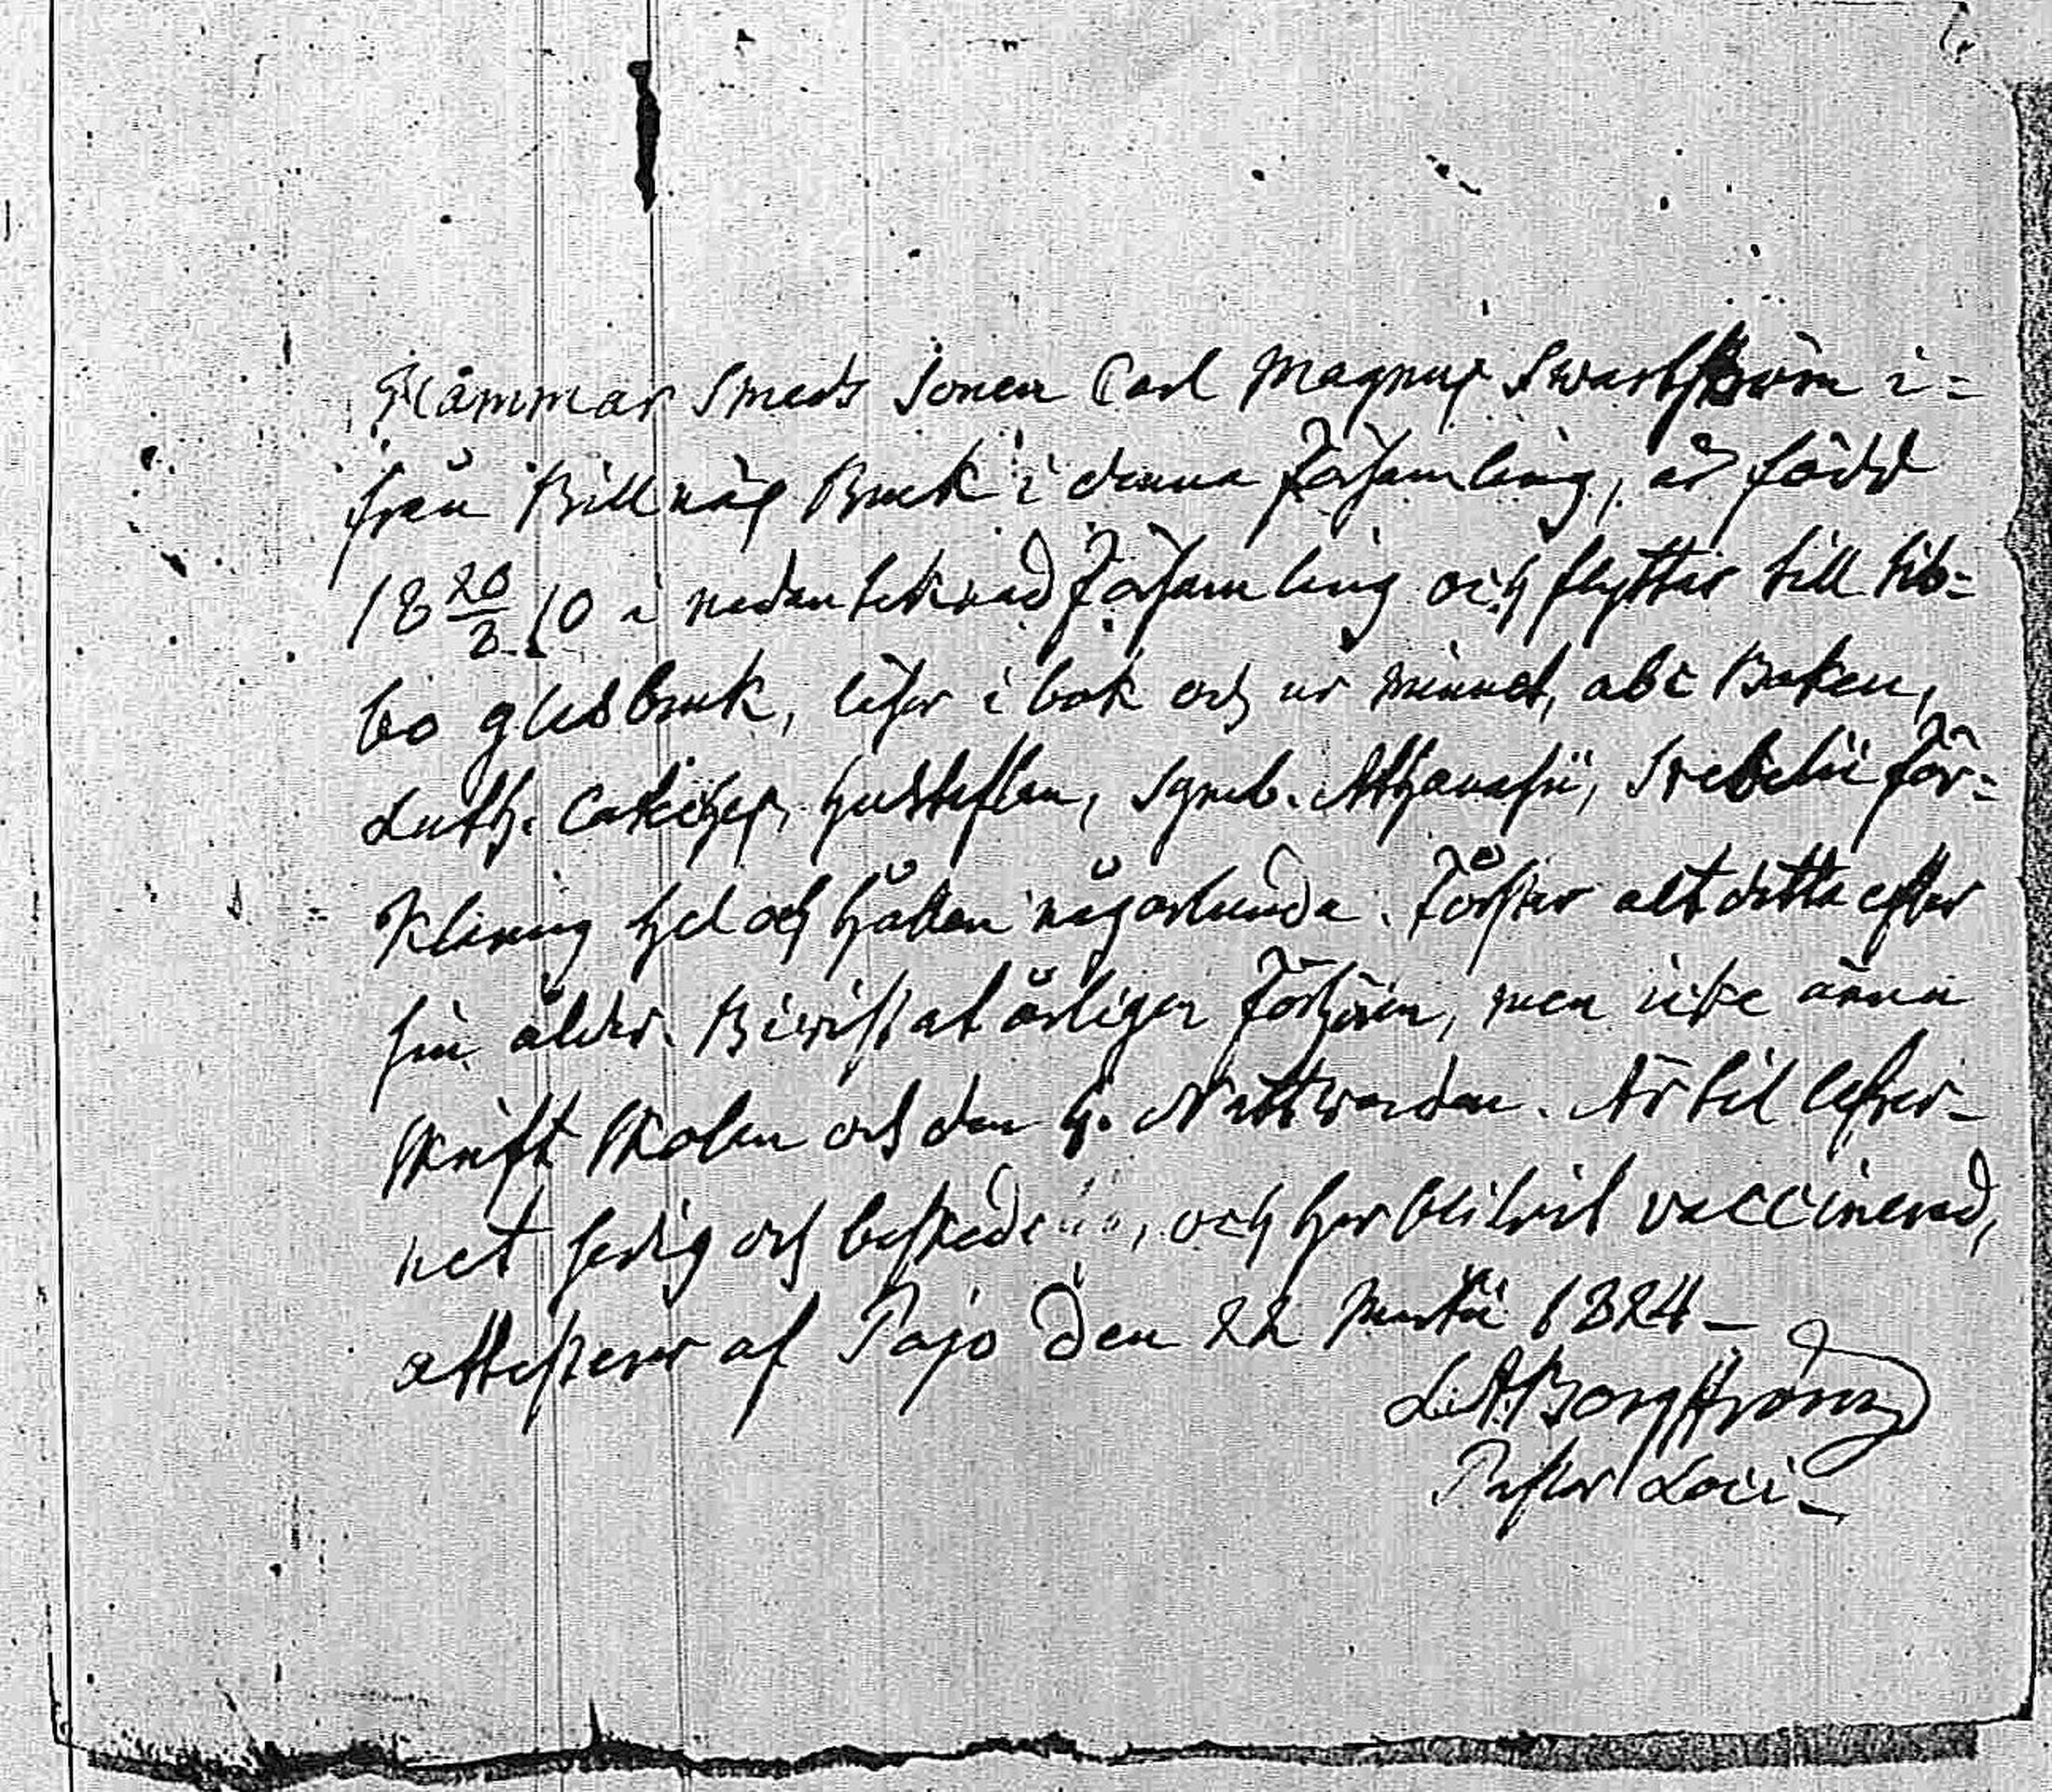 Hammar Smeds Sonen Carl Magnus Swartström i=
från Billnäs Bruk i denna Församling, är född
18 20/3 10 i nedantecknad Församling och flyttar till
bo glasbruk, läser i bok och ur minnet, abc Boken,
Luth. Cateches, hustaflan, Symb. Athanasii, Svebelii för=
klaring hel och hållen någorlunda. Förstår alt detta efter
sin ålder. Biwistat årligen Förhören, men icke ännu
skrift skolan och den H. Nattwarden. Är til lefver-
net sedig och, och har blifwit vaccinerad,
attesterar af Pojo den 22 Martii 1824 –
L. A. Borgström
Pastor Loci –